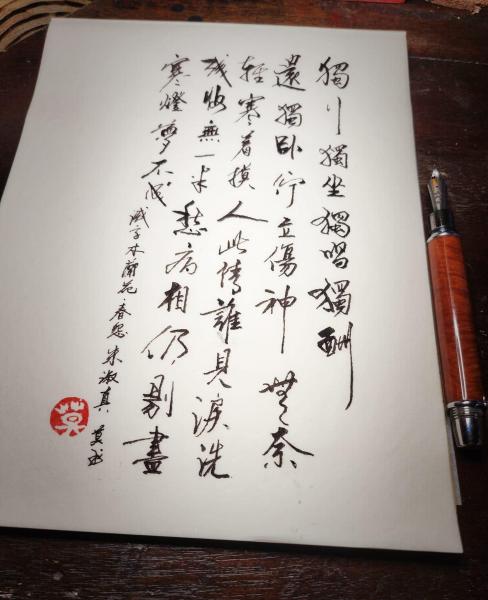 獨行獨坐獨唱獨酬
還獨臥佇立傷神無奈
輕寒着摸人此情誰見淚洗
殘妝無一半愁病相仍剔盡
寒燈夢不成
減字木蘭花·春怨朱淑真 莫武
莫